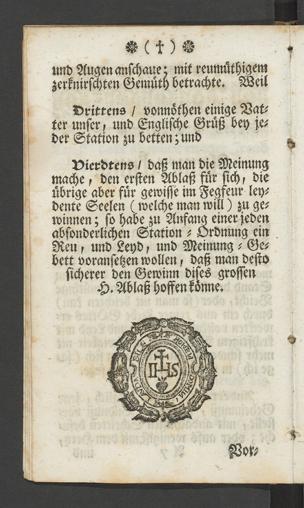 ❋ ( † ) ❋
und Augen anschaue; mit reumüthigem
zerknirschten Gemüth betrachte. Weil
Drittens / vonnöthen einige Vat-
ter unser, und Englische Grüß bey je-
der Station zu betten; und
Vierdtens / daß man die Meinung
mache, den ersten Ablaß für sich, die
übrige aber für gewisse im Fegfeur ley-
dente Seelen (welche man will) zu ge-
winnen; so habe zu Anfang einer jeden
absonderlichen Station-Ordnung ein
Reu, und Leyd, und Meinung-Ge-
bett voransetzen wollen, daß man desto
sicherer den Gewinn dises grossen
H. Ablaß hoffen könne.
IHS
Vor-